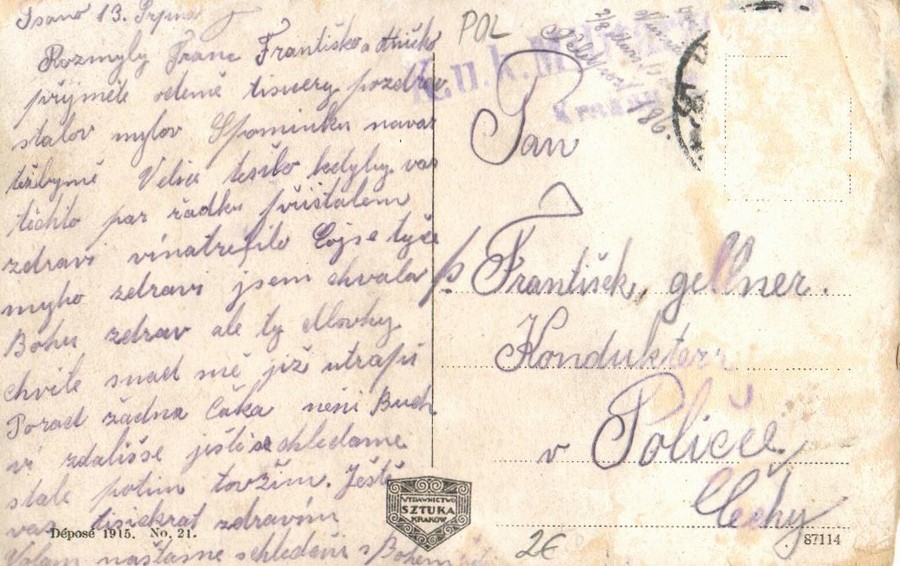 13. Srpna
Rozmyly Franc Františko a Aničko
přijměte odemě tisicery pozdrav
stalov mylov Spominku navas
Velice tešilo kdyby vas
těchto par řadku při stalem
zdravi vinatrefilo Cojse tyče
myho zdravi jsem chvala
Bohu zdrav ale ty dlovhy
chvile snad mě již utrapi
Porad žadna čaka neni Buch
vi zdališse ještise shledame
stale potim tovžim. Ještě
vas tisickrat zdravim
Volam našťasne schledani s Bohem
POL
K.u.k. Mi
Feldpost 186.
Pan
p. František, gellner.
Kondukter
v Poličce
Čechy
WYDAWNICTWO
SZTUKA
KRAKÓW
Déposé 1915. No. 21.
2€
87114